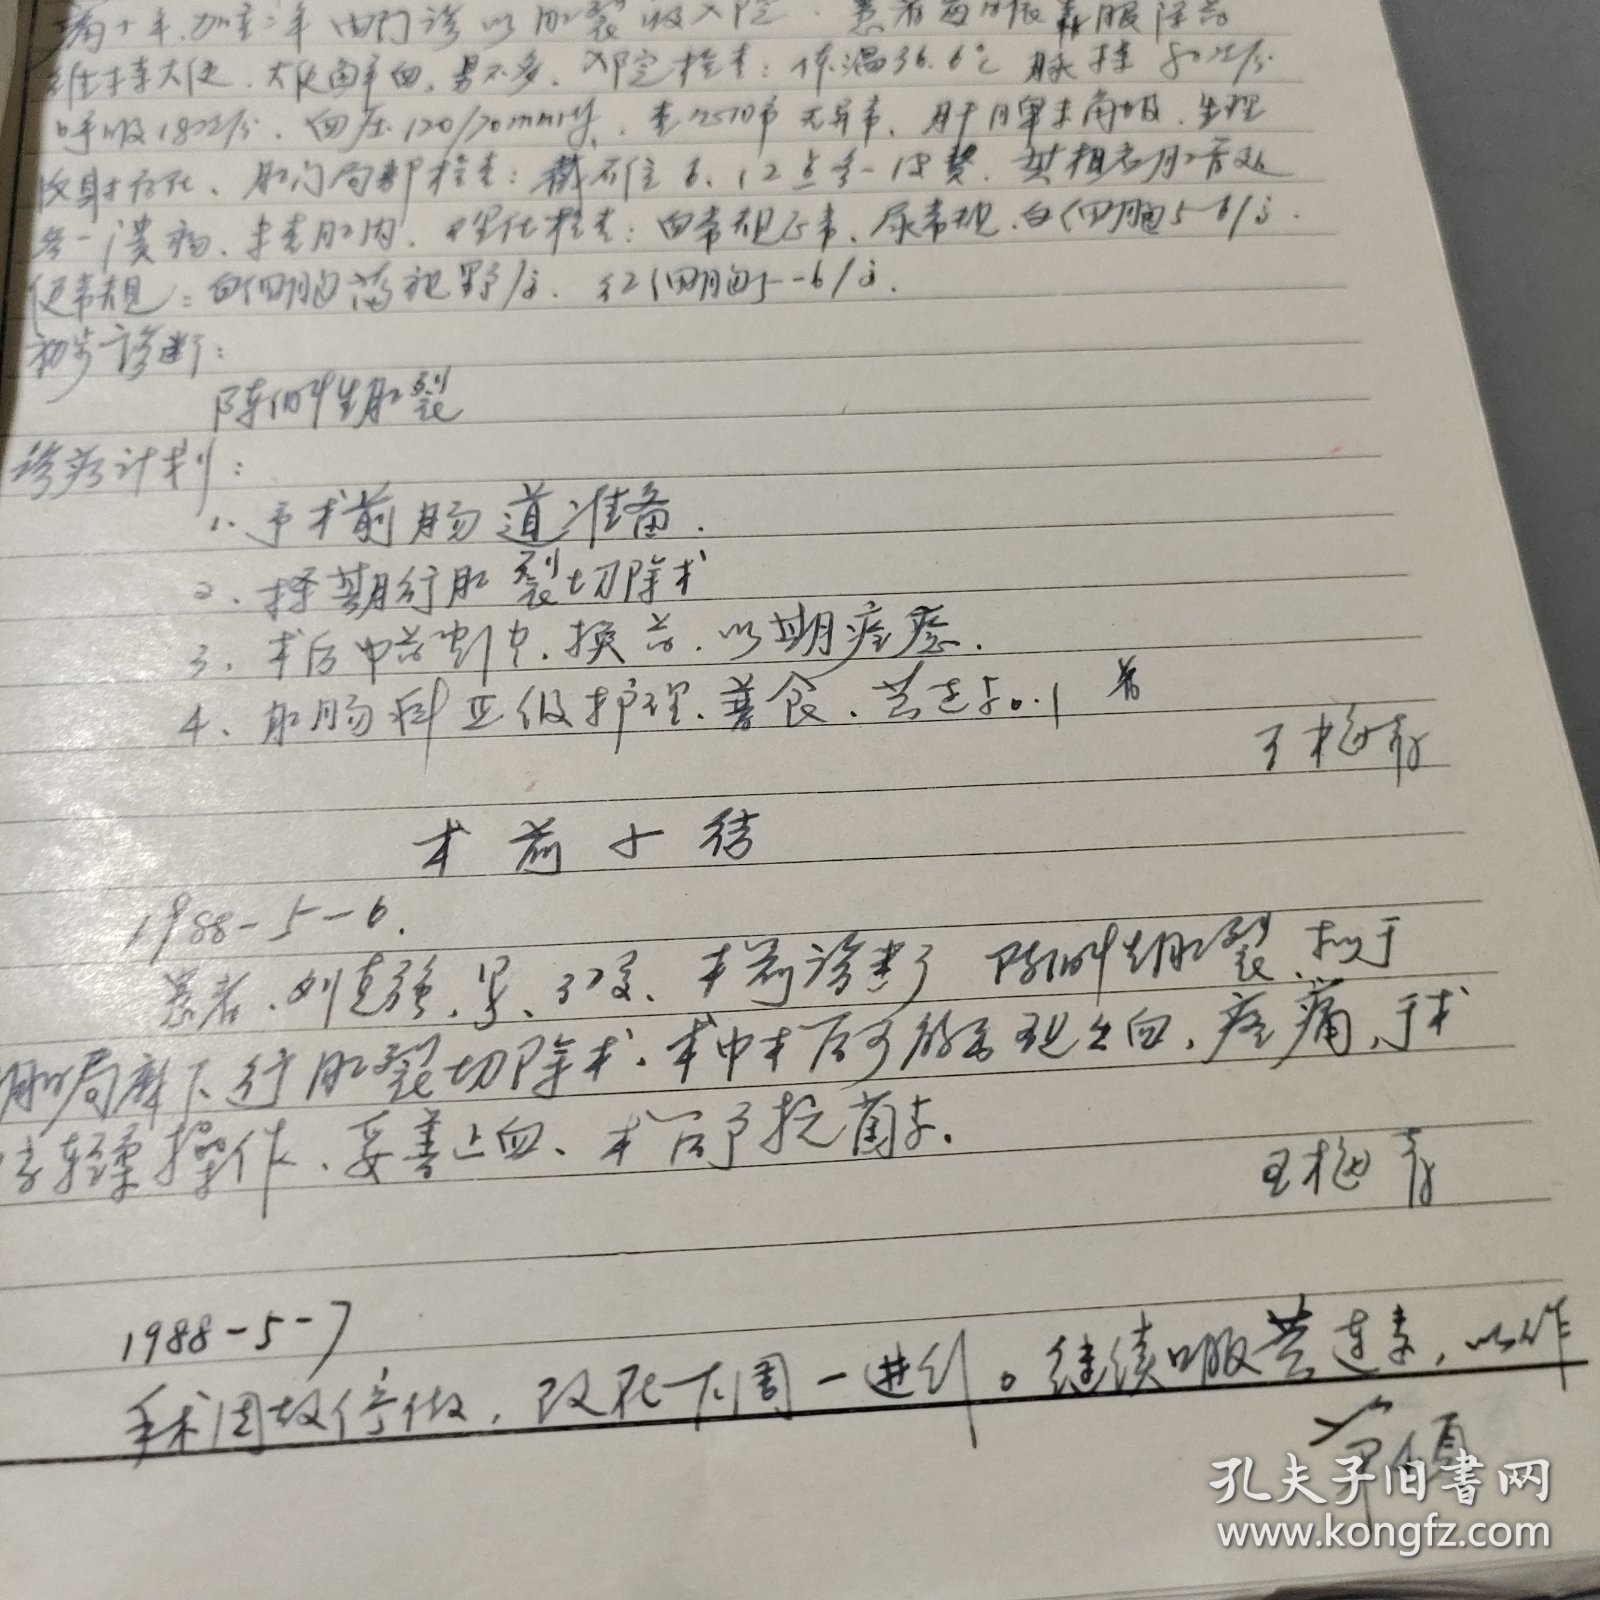 病十年.加重二年 由门诊以肛裂收入院. 患者每日依靠服泻药
维持大便. 大便鲜血. 量不多. 入院检查: 体温36.6℃ 脉搏 80次/分
呼吸18次/分. 血压120/70mmHg. 无异常. 肝脾未触及. 生理
反射存在. 肛门局部检查: 截石位 6、12点各一
各一溃疡. 未查肛内. 理化检查: 血常规正常. 尿常规. 白细胞5-6/高.
便常规: 白细胞满视野/高. 红细胞5-6/高.
初步诊断:
陈旧性肛裂
诊疗计划:
1. 予术前肠道准备.
2. 择期行肛裂切除术
3. 术后中药 换药. 以期痊愈.
4. 肛肠科Ⅲ级护理. 普食. 黄连素0.1
王梅
术前小结
1988-5-6.
患者. 刘克强. 男. 37岁. 术前诊断 陈旧性肛裂. 拟于
局麻下行肛裂切除术. 术中术后可能出现出血. 疼痛. 手术
轻柔操作. 妥善止血. 术后予抗菌素.
王梅
1988-5-7
手术因故停做, 改在下周一进行。继续口服黄连素, 以作
孔夫子旧书网
www.kongfz.com